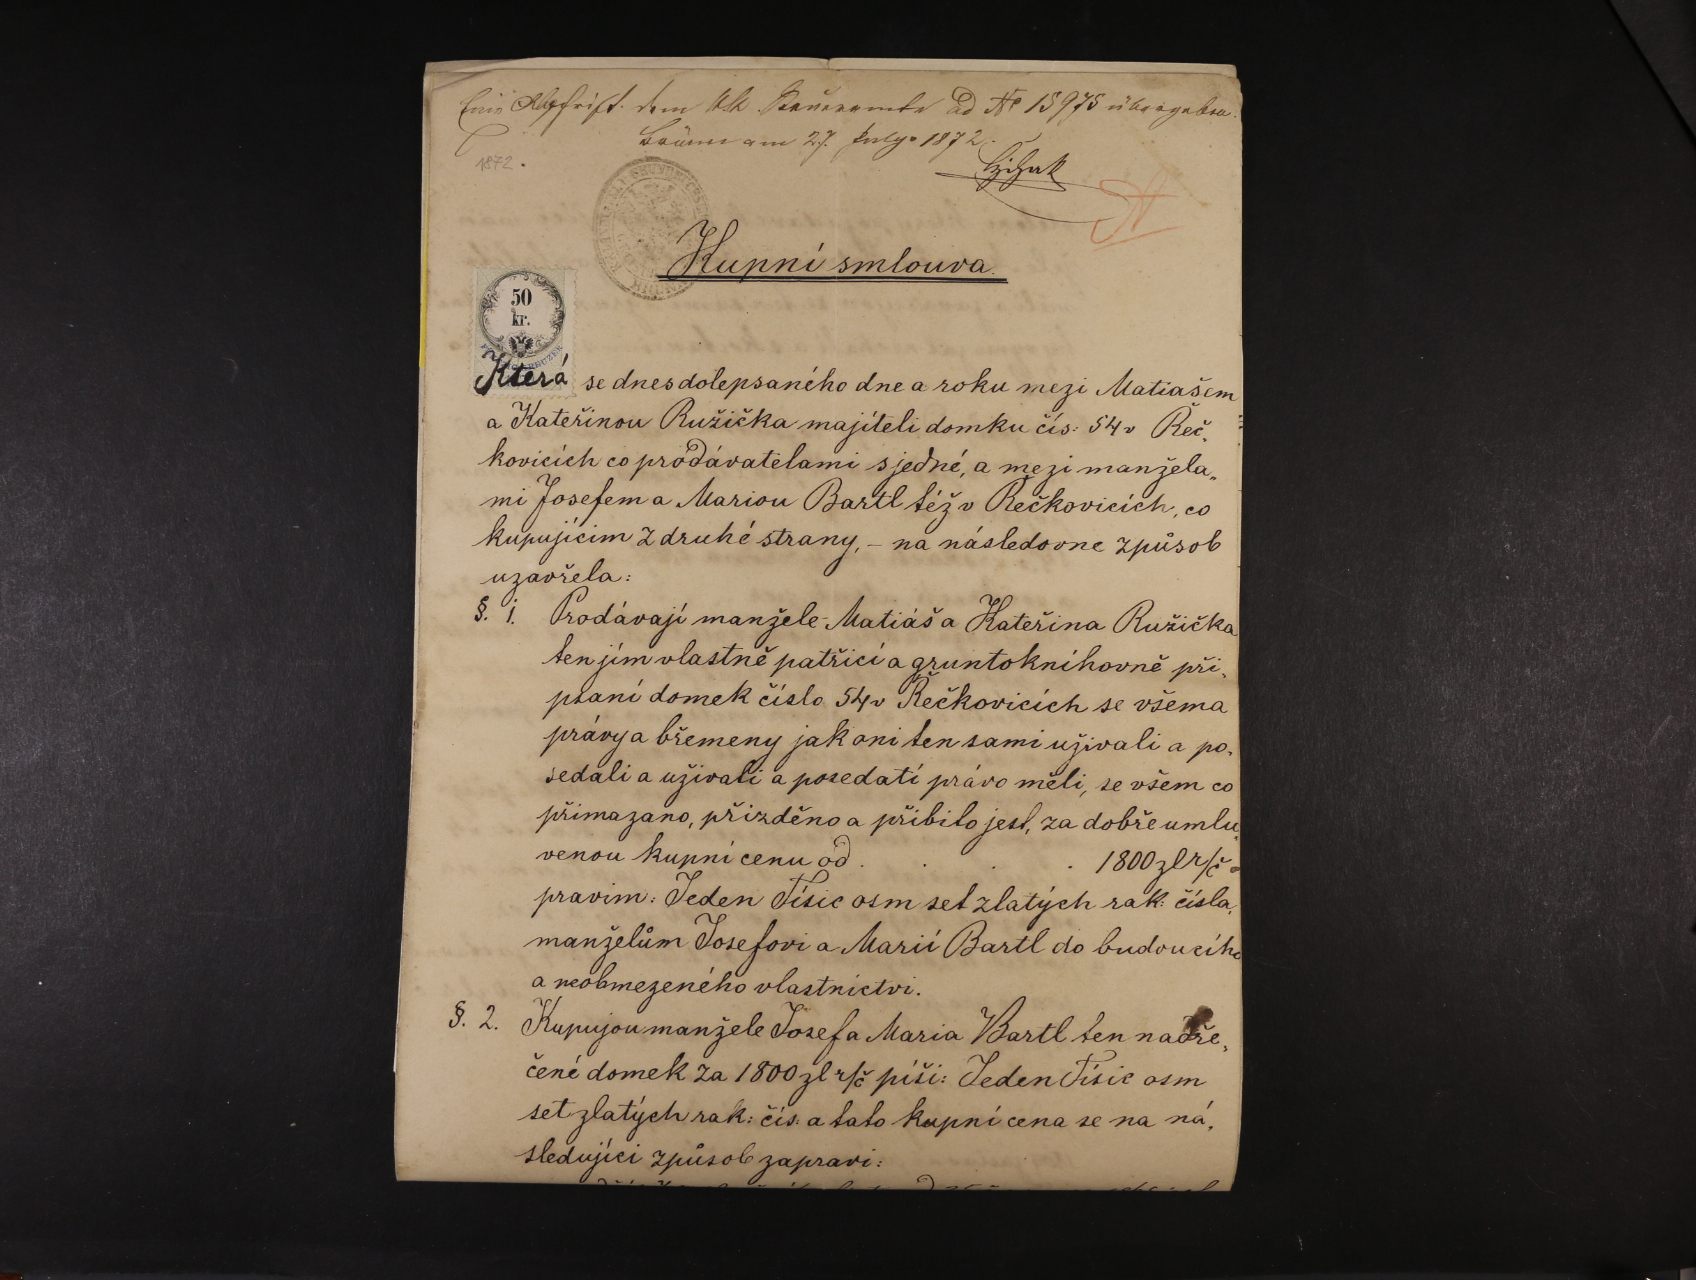 Eine Abschrift dem k.k. Steueramte ad No 15975 übergeben.
Brünn am 27. July 1872
1872.
Kupní smlouva.
50
kr.
Která se dnes dolepsaného dne a roku mezi Matiašem
a Kateřinou Ružička majíteli domku čís: 54 v Řeč„
kovicích co prodávatelami s jedné, a mezi manžela„
mi Josefem a Mariou Bartl též v Řečkovicích, co
kupujícim z druhé strany, – na následovne způsob
uzavřela:
§. 1. Prodávají manžele Matiáš a Kateřina Ružička
ten jím vlastně patřicí a gruntoknihovně při„
psaní domek číslo 54 v Řečkovicích se všema
právy a břemeny jak oni ten sami uživali a po„
sedali a uživati a posedatí právo měli, se všem co
přimazano, přizděno a přibito jest, za dobře umlu„
venou kupní cenu od . . . . 1800 zl r/č
pravim: Jeden Tísic osm set zlatých rak: čísla,
manželům Josefovi a Marií Bartl do budoucího
a neobmezeného vlastnictvi.
§. 2. Kupujou manžele Josef a Maria Bartl ten nadře„
čené domek za 1800 zl r/č píši: Jeden Tísic osm
set zlatých rak: čís: a tato kupní cena se na ná„
sledujíci způsob zapraví: